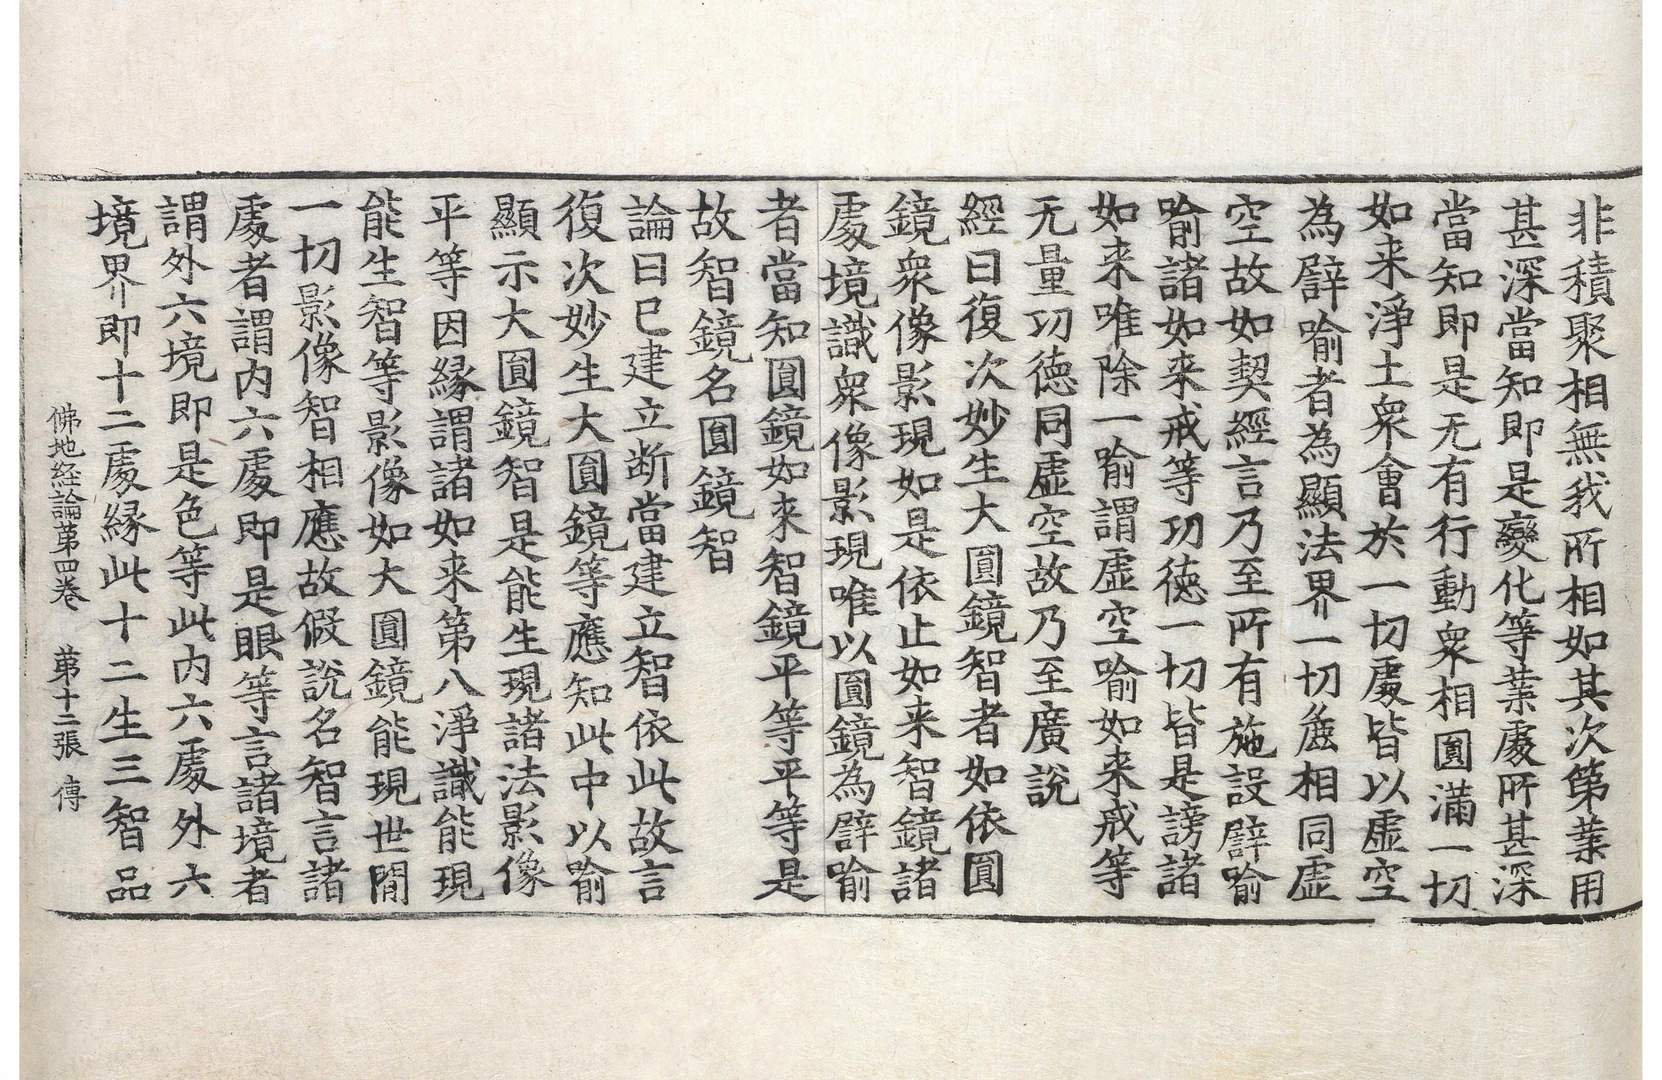 非積聚相無我所相如其次第業用
甚深當知即是變化等業處所甚深
當知即是无有行動衆相圓滿一切
如来淨土衆會於一切處皆以虛空
為譬喻者為顯法界一切䴡相同虛
空故如契經言乃至所有施設譬喻
喻諸如来戒等功德一切皆是謗諸
如来唯除一喻謂虛空喻如来戒等
无量功德同虛空故乃至廣說
經曰復次妙生大圓鏡智者如依圓
鏡衆像影現如是依止如来智鏡諸
處境識衆像影現唯以圓鏡為譬喻
者當知圓鏡如来智鏡平等平等是
故智鏡名圓鏡智
論曰已建立断當建立智依此故言
復次妙生大圓鏡等應知此中以喻
顯示大圓鏡智是能生現諸法影像
平等因緣謂諸如来第八淨識能現
能生智等影像如大圓鏡能現世閒
一切影像智相應故假說名智言諸
處者謂内六處即是眼等言諸境者
謂外六境即是色等此内六處外六
境界即十二處緣此十二生三智品
佛地経論苐四卷　苐十二張　傳